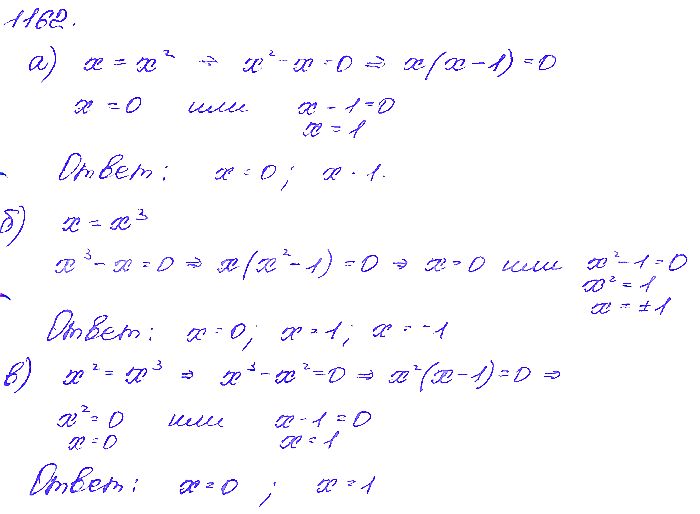 1162.
а) x = x² ⇒ x² - x = 0 ⇒ x(x - 1) = 0
x = 0 или x - 1 = 0
x = 1
Ответ: x = 0; x = 1.
б) x = x³
x³ - x = 0 ⇒ x(x² - 1) = 0 ⇒ x = 0 или x² - 1 = 0
x² = 1
x = ±1
Ответ: x = 0; x = 1; x = -1
в) x² = x³ ⇒ x³ - x² = 0 ⇒ x²(x - 1) = 0 ⇒
x² = 0 или x - 1 = 0
x = 0 x = 1
Ответ: x = 0 ; x = 1